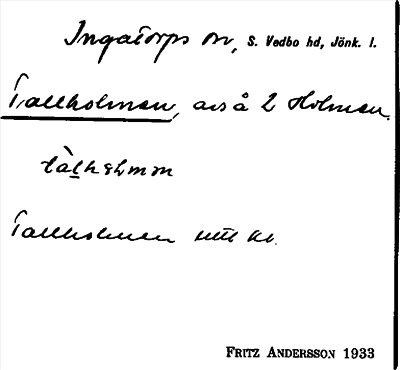 Ingatorps sn, S. Vedbo hd, Jönk. l.
Tallholmen, avs å 2 Holmen.
Tallholmen
FRITZ ANDERSSON 1933